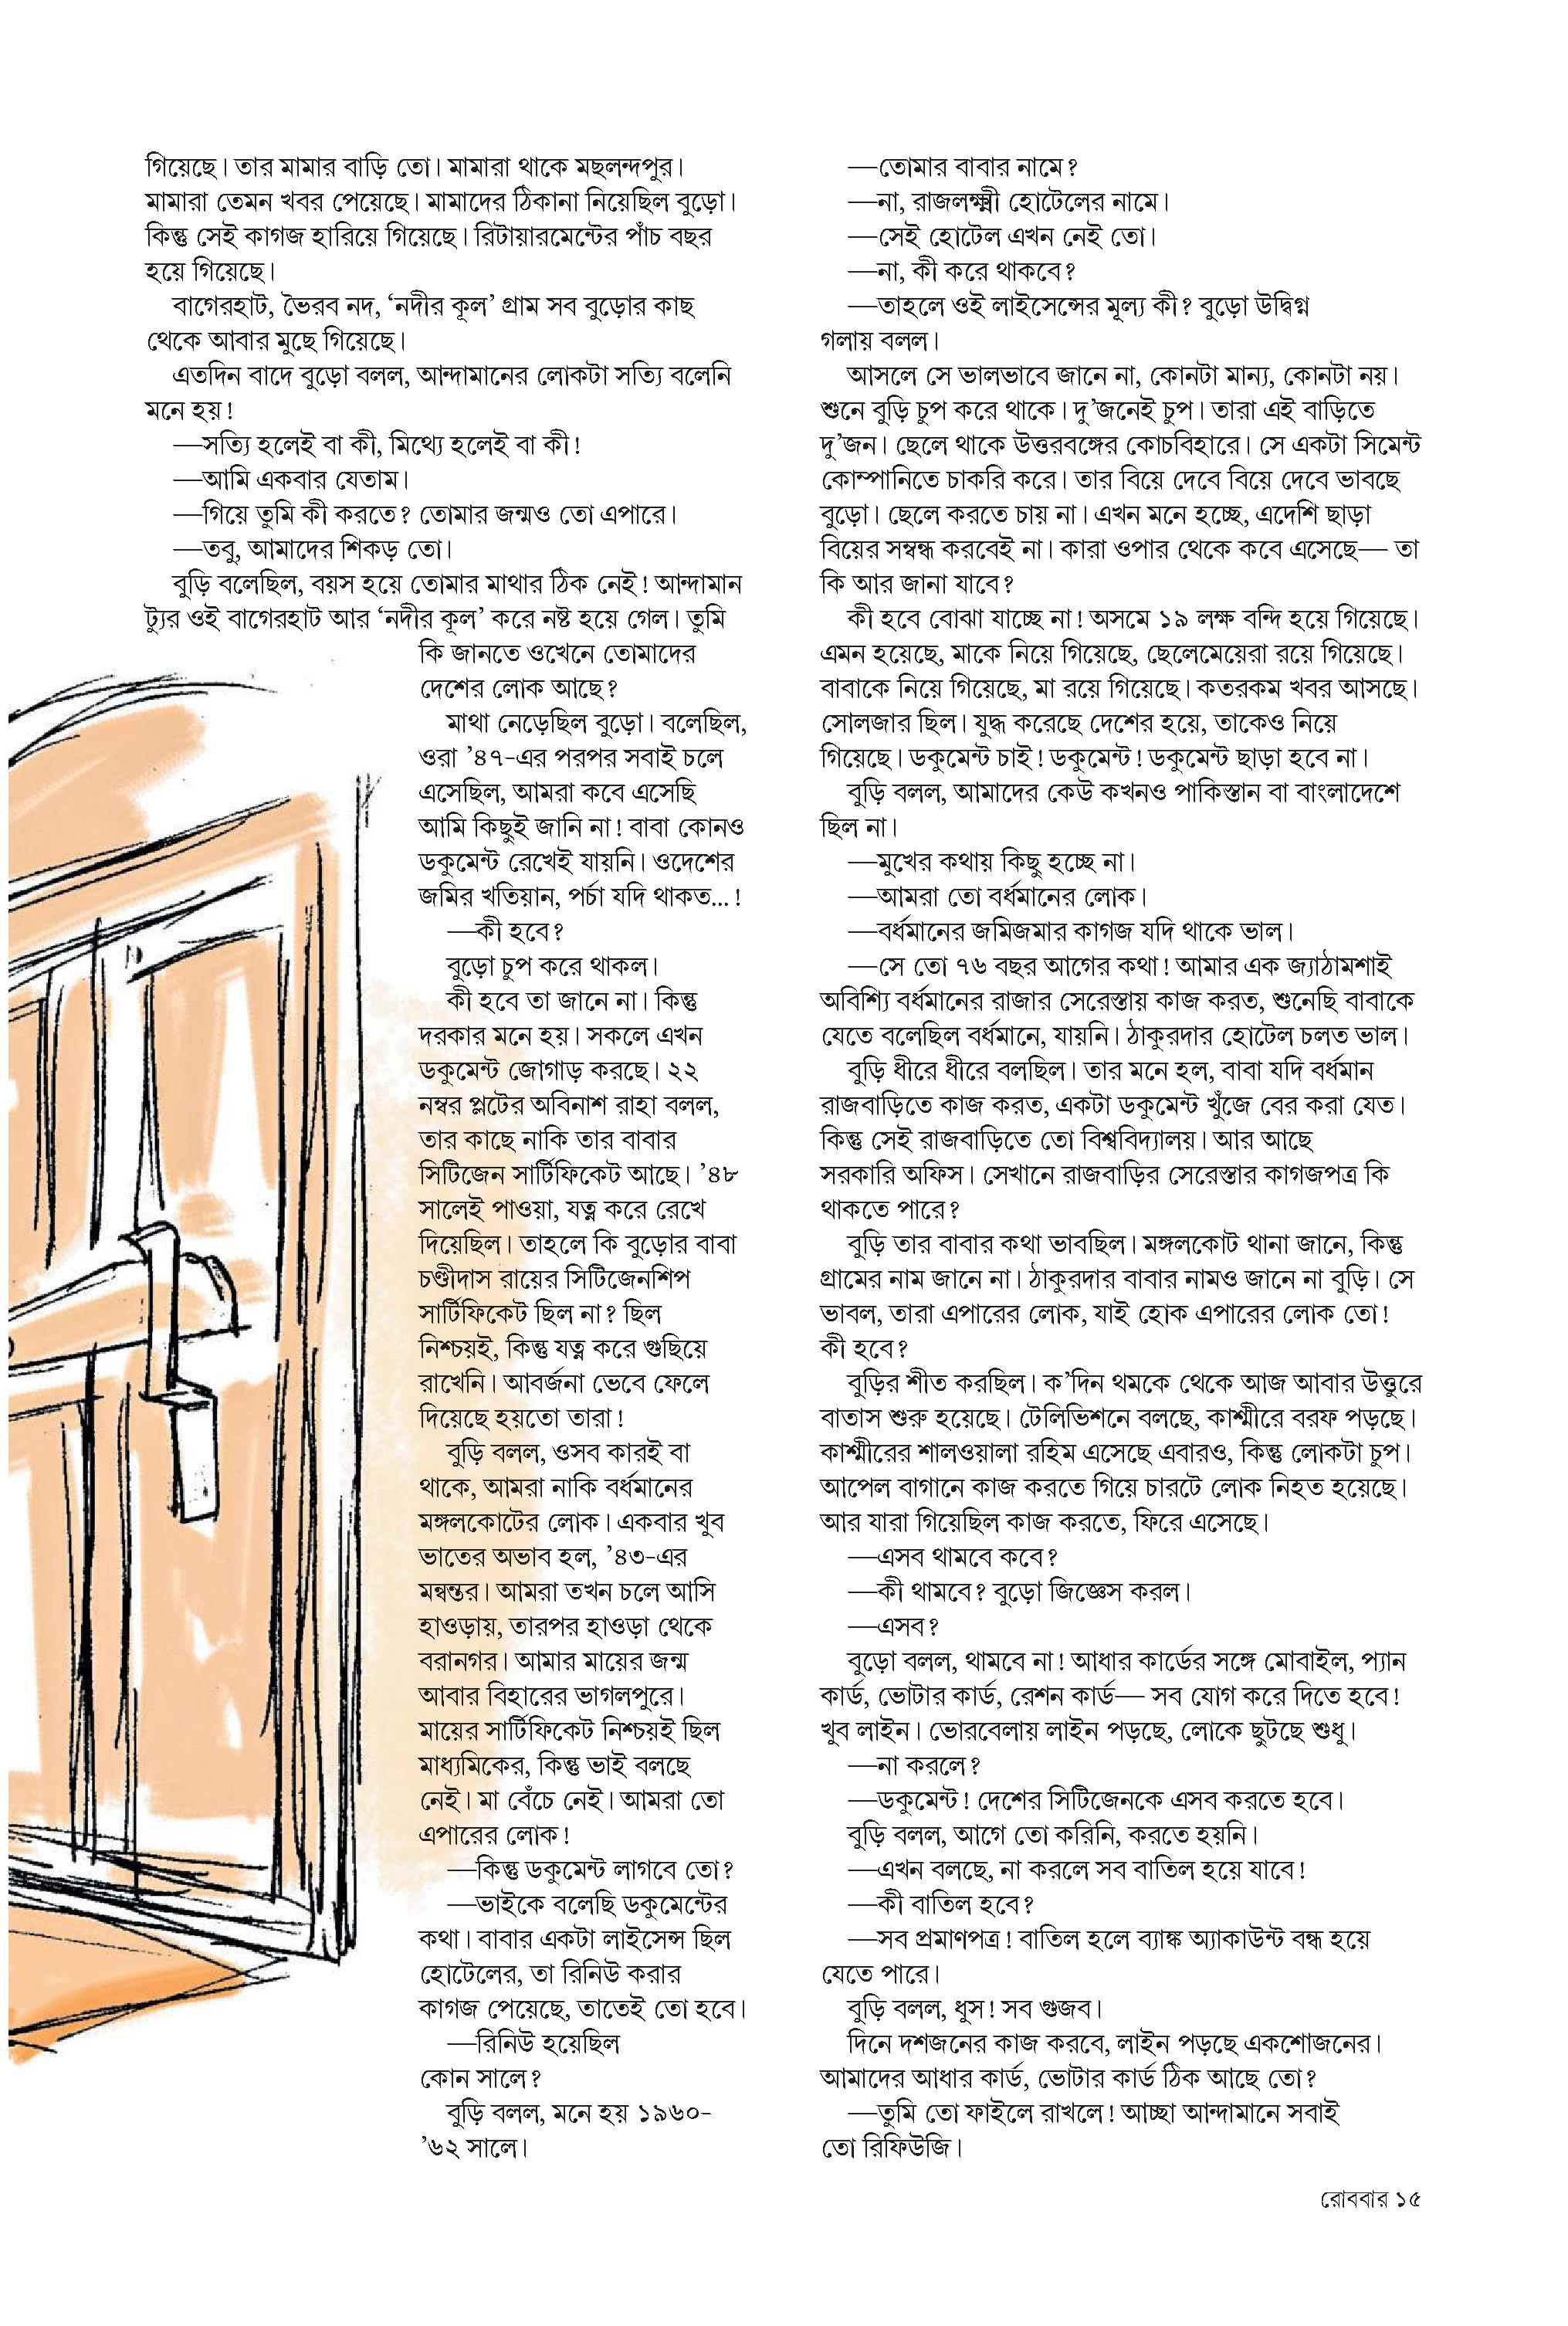 গিয়েছে। তার মামার বাড়ি তো। মামারা থাকে মছলন্দপুর।
মামারা তেমন খবর পেয়েছে। মামাদের ঠিকানা নিয়েছিল বুড়ো।
কিন্তু সেই কাগজ হারিয়ে গিয়েছে। রিটায়ারমেন্টের পাঁচ বছর
হয়ে গিয়েছে।
বাগেরহাট, ভৈরব নদ, ‘নদীর কূল’ গ্রাম সব বুড়োর কাছ
থেকে আবার মুছে গিয়েছে।
এতদিন বাদে বুড়ো বলল, আন্দামানের লোকটা সত্যি বলেনি
মনে হয়!
—সত্যি হলেই বা কী, মিথ্যে হলেই বা কী!
—আমি একবার যেতাম।
—গিয়ে তুমি কী করতে? তোমার জন্মও তো এপারে।
—তবু, আমাদের শিকড় তো।
বুড়ি বলেছিল, বয়স হয়ে তোমার মাথার ঠিক নেই! আন্দামান
ট্যুর ওই বাগেরহাট আর ‘নদীর কূল’ করে নষ্ট হয়ে গেল। তুমি
কি জানতে ওখেনে তোমাদের
দেশের লোক আছে?
মাথা নেড়েছিল বুড়ো। বলেছিল,
ওরা ’৪৭-এর পরপর সবাই চলে
এসেছিল, আমরা কবে এসেছি
আমি কিছুই জানি না! বাবা কোনও
ডকুমেন্ট রেখেই যায়নি। ওদেশের
জমির খতিয়ান, পর্চা যদি থাকত...!
—কী হবে?
বুড়ো চুপ করে থাকল।
কী হবে তা জানে না। কিন্তু
দরকার মনে হয়। সকলে এখন
ডকুমেন্ট জোগাড় করছে। ২২
নম্বর প্লটের অবিনাশ রাহা বলল,
তার কাছে নাকি তার বাবার
সিটিজেন সার্টিফিকেট আছে। ’৪৮
সালেই পাওয়া, যত্ন করে রেখে
দিয়েছিল। তাহলে কি বুড়োর বাবা
চণ্ডীদাস রায়ের সিটিজেনশিপ
সার্টিফিকেট ছিল না? ছিল
নিশ্চয়ই, কিন্তু যত্ন করে গুছিয়ে
রাখেনি। আবর্জনা ভেবে ফেলে
দিয়েছে হয়তো তারা!
বুড়ি বলল, ওসব কারই বা
থাকে, আমরা নাকি বর্ধমানের
মঙ্গলকোটের লোক। একবার খুব
ভাতের অভাব হল, ’৪৩-এর
মন্বন্তর। আমরা তখন চলে আসি
হাওড়ায়, তারপর হাওড়া থেকে
বরানগর। আমার মায়ের জন্ম
আবার বিহারের ভাগলপুরে।
মায়ের সার্টিফিকেট নিশ্চয়ই ছিল
মাধ্যমিকের, কিন্তু ভাই বলছে
নেই। মা বেঁচে নেই। আমরা তো
এপারের লোক!
—কিন্তু ডকুমেন্ট লাগবে তো?
—ভাইকে বলেছি ডকুমেন্টের
কথা। বাবার একটা লাইসেন্স ছিল
হোটেলের, তা রিনিউ করার
কাগজ পেয়েছে, তাতেই তো হবে।
—রিনিউ হয়েছিল
কোন সালে?
বুড়ি বলল, মনে হয় ১৯৬০-
’৬২ সালে।
—তোমার বাবার নামে?
—না, রাজলক্ষ্মী হোটেলের নামে।
—সেই হোটেল এখন নেই তো।
—না, কী করে থাকবে?
—তাহলে ওই লাইসেন্সের মূল্য কী? বুড়ো উদ্বিগ্ন
গলায় বলল।
আসলে সে ভালভাবে জানে না, কোনটা মান্য, কোনটা নয়।
শুনে বুড়ি চুপ করে থাকে। দু’জনেই চুপ। তারা এই বাড়িতে
দু’জন। ছেলে থাকে উত্তরবঙ্গের কোচবিহারে। সে একটা সিমেন্ট
কোম্পানিতে চাকরি করে। তার বিয়ে দেবে বিয়ে দেবে ভাবছে
বুড়ো। ছেলে করতে চায় না। এখন মনে হচ্ছে, এদেশি ছাড়া
বিয়ের সম্বন্ধ করবেই না। কারা ওপার থেকে কবে এসেছে— তা
কি আর জানা যাবে?
কী হবে বোঝা যাচ্ছে না! অসমে ১৯ লক্ষ বন্দি হয়ে গিয়েছে।
এমন হয়েছে, মাকে নিয়ে গিয়েছে, ছেলেমেয়েরা রয়ে গিয়েছে।
বাবাকে নিয়ে গিয়েছে, মা রয়ে গিয়েছে। কতরকম খবর আসছে।
সোলজার ছিল। যুদ্ধ করেছে দেশের হয়ে, তাকেও নিয়ে
গিয়েছে। ডকুমেন্ট চাই! ডকুমেন্ট! ডকুমেন্ট ছাড়া হবে না।
বুড়ি বলল, আমাদের কেউ কখনও পাকিস্তান বা বাংলাদেশে
ছিল না।
—মুখের কথায় কিছু হচ্ছে না।
—আমরা তো বর্ধমানের লোক।
—বর্ধমানের জমিজমার কাগজ যদি থাকে ভাল।
—সে তো ৭৬ বছর আগের কথা! আমার এক জ্যাঠামশাই
অবিশ্যি বর্ধমানের রাজার সেরেস্তায় কাজ করত, শুনেছি বাবাকে
যেতে বলেছিল বর্ধমানে, যায়নি। ঠাকুরদার হোটেল চলত ভাল।
বুড়ি ধীরে ধীরে বলছিল। তার মনে হল, বাবা যদি বর্ধমান
রাজবাড়িতে কাজ করত, একটা ডকুমেন্ট খুঁজে বের করা যেত।
কিন্তু সেই রাজবাড়িতে তো বিশ্ববিদ্যালয়। আর আছে
সরকারি অফিস। সেখানে রাজবাড়ির সেরেস্তার কাগজপত্র কি
থাকতে পারে?
বুড়ি তার বাবার কথা ভাবছিল। মঙ্গলকোট থানা জানে, কিন্তু
গ্রামের নাম জানে না। ঠাকুরদার বাবার নামও জানে না বুড়ি। সে
ভাবল, তারা এপারের লোক, যাই হোক এপারের লোক তো!
কী হবে?
বুড়ির শীত করছিল। ক’দিন থমকে থেকে আজ আবার উত্তুরে
বাতাস শুরু হয়েছে। টেলিভিশনে বলছে, কাশ্মীরে বরফ পড়ছে।
কাশ্মীরের শালওয়ালা রহিম এসেছে এবারও, কিন্তু লোকটা চুপ।
আপেল বাগানে কাজ করতে গিয়ে চারটে লোক নিহত হয়েছে।
আর যারা গিয়েছিল কাজ করতে, ফিরে এসেছে।
—এসব থামবে কবে?
—কী থামবে? বুড়ো জিজ্ঞেস করল।
—এসব?
বুড়ো বলল, থামবে না! আধার কার্ডের সঙ্গে মোবাইল, প্যান
কার্ড, ভোটার কার্ড, রেশন কার্ড— সব যোগ করে দিতে হবে!
খুব লাইন। ভোরবেলায় লাইন পড়ছে, লোকে ছুটছে শুধু।
—না করলে?
—ডকুমেন্ট! দেশের সিটিজেনকে এসব করতে হবে।
বুড়ি বলল, আগে তো করিনি, করতে হয়নি।
—এখন বলছে, না করলে সব বাতিল হয়ে যাবে!
—কী বাতিল হবে?
—সব প্রমাণপত্র! বাতিল হলে ব্যাঙ্ক অ্যাকাউন্ট বন্ধ হয়ে
যেতে পারে।
বুড়ি বলল, ধুস! সব গুজব।
দিনে দশজনের কাজ করবে, লাইন পড়ছে একশোজনের।
আমাদের আধার কার্ড, ভোটার কার্ড ঠিক আছে তো?
—তুমি তো ফাইলে রাখলে! আচ্ছা আন্দামানে সবাই
তো রিফিউজি।
রোববার ১৫